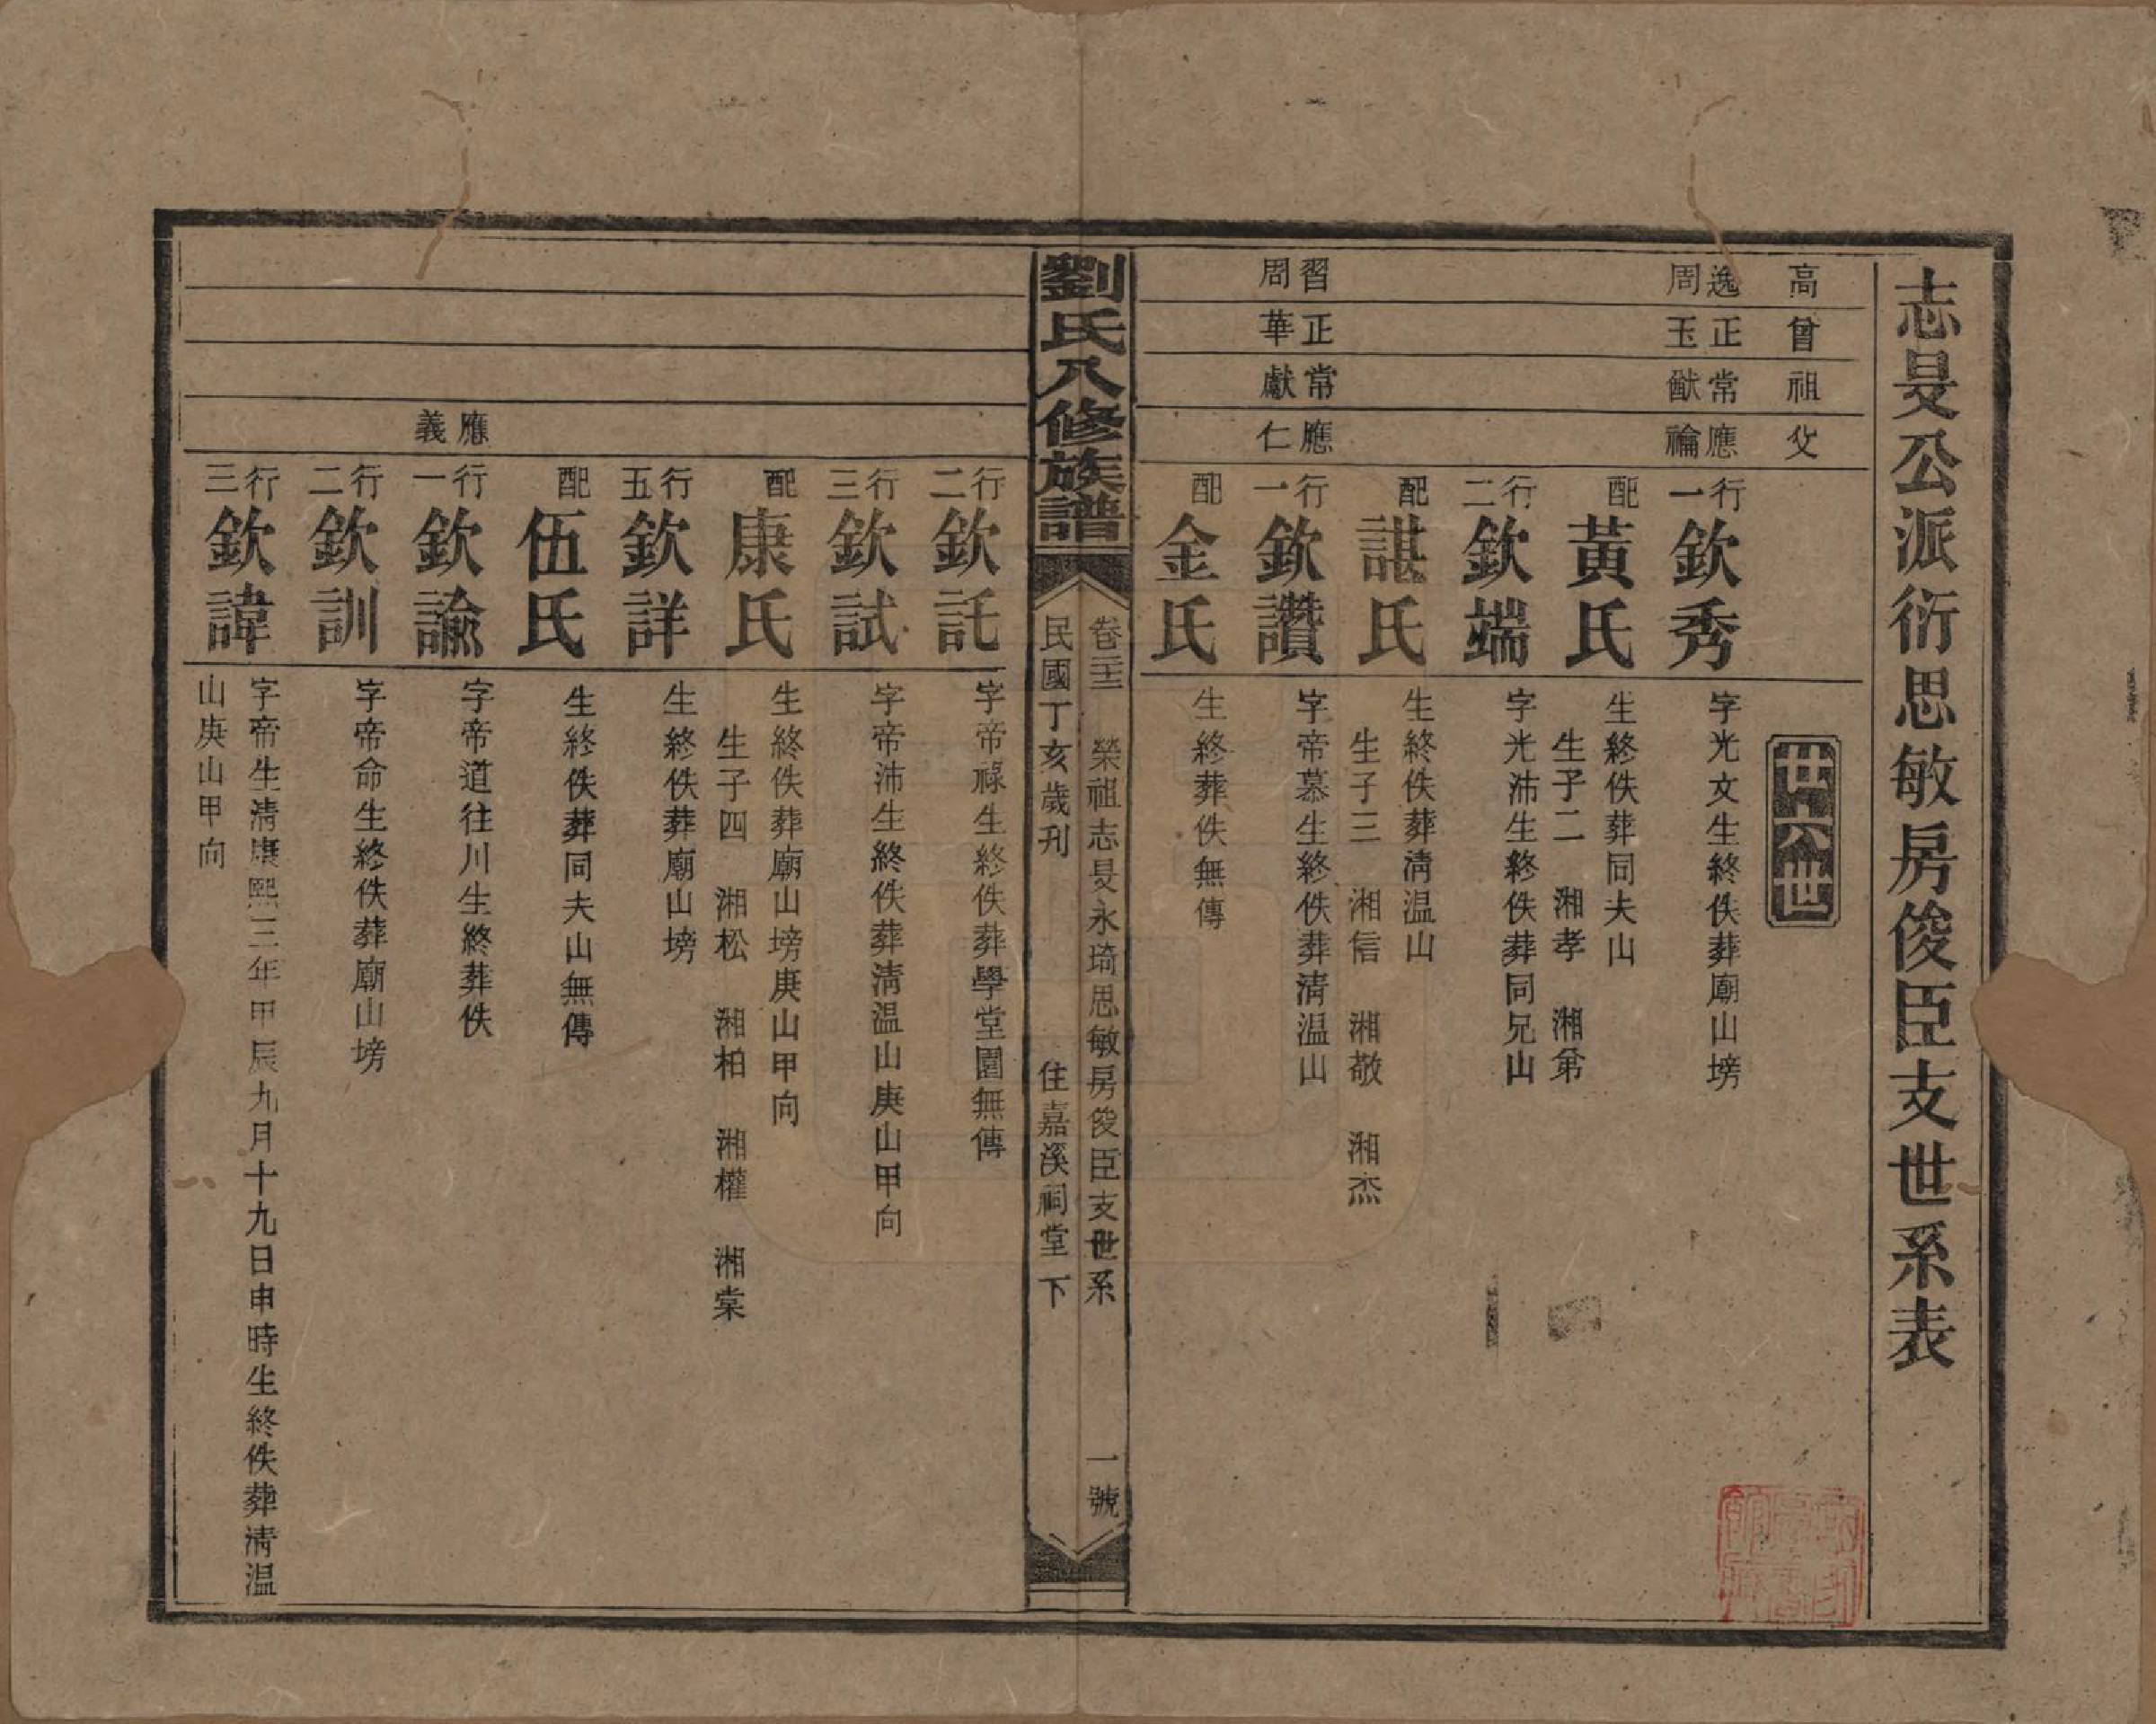 志旻公派衍思敏房俊臣支世系表
高
曾
祖
父
廿六世
逸周
正玉
常猷
應禴
行一
欽秀
字光文生終佚葬廟山塝
配
黃氏
生終佚葬同夫山
生子二 湘孝 湘弟
行二
欽端
字光沛生終佚葬同兄山
配
諶氏
生終佚葬清温山
生子三 湘信 湘敬 湘杰
習周
正華
常獻
應仁
行一
欽讚
字帝慕生終佚葬清温山
配
金氏
生終葬佚無傳
劉氏八修族譜
榮祖志旻永琦思敏房俊臣支世系
一號
民國丁亥歲刊
住嘉溪祠堂下
行二
欽託
字帝祿生終佚葬學堂園無傳
行三
欽試
字帝沛生終佚葬清温山庚山甲向
配
康氏
生終佚葬廟山塝庚山甲向
生子四 湘松 湘柏 湘權 湘棠
行五
欽詳
生終佚葬廟山塝
配
伍氏
生終佚葬同夫山無傳
應義
行一
欽諭
字帝道往川生終葬佚
行二
欽訓
字帝命生終佚葬廟山塝
行三
欽諱
字帝生清康熙三年甲辰九月十九日申時生終佚葬清温
山庚山甲向